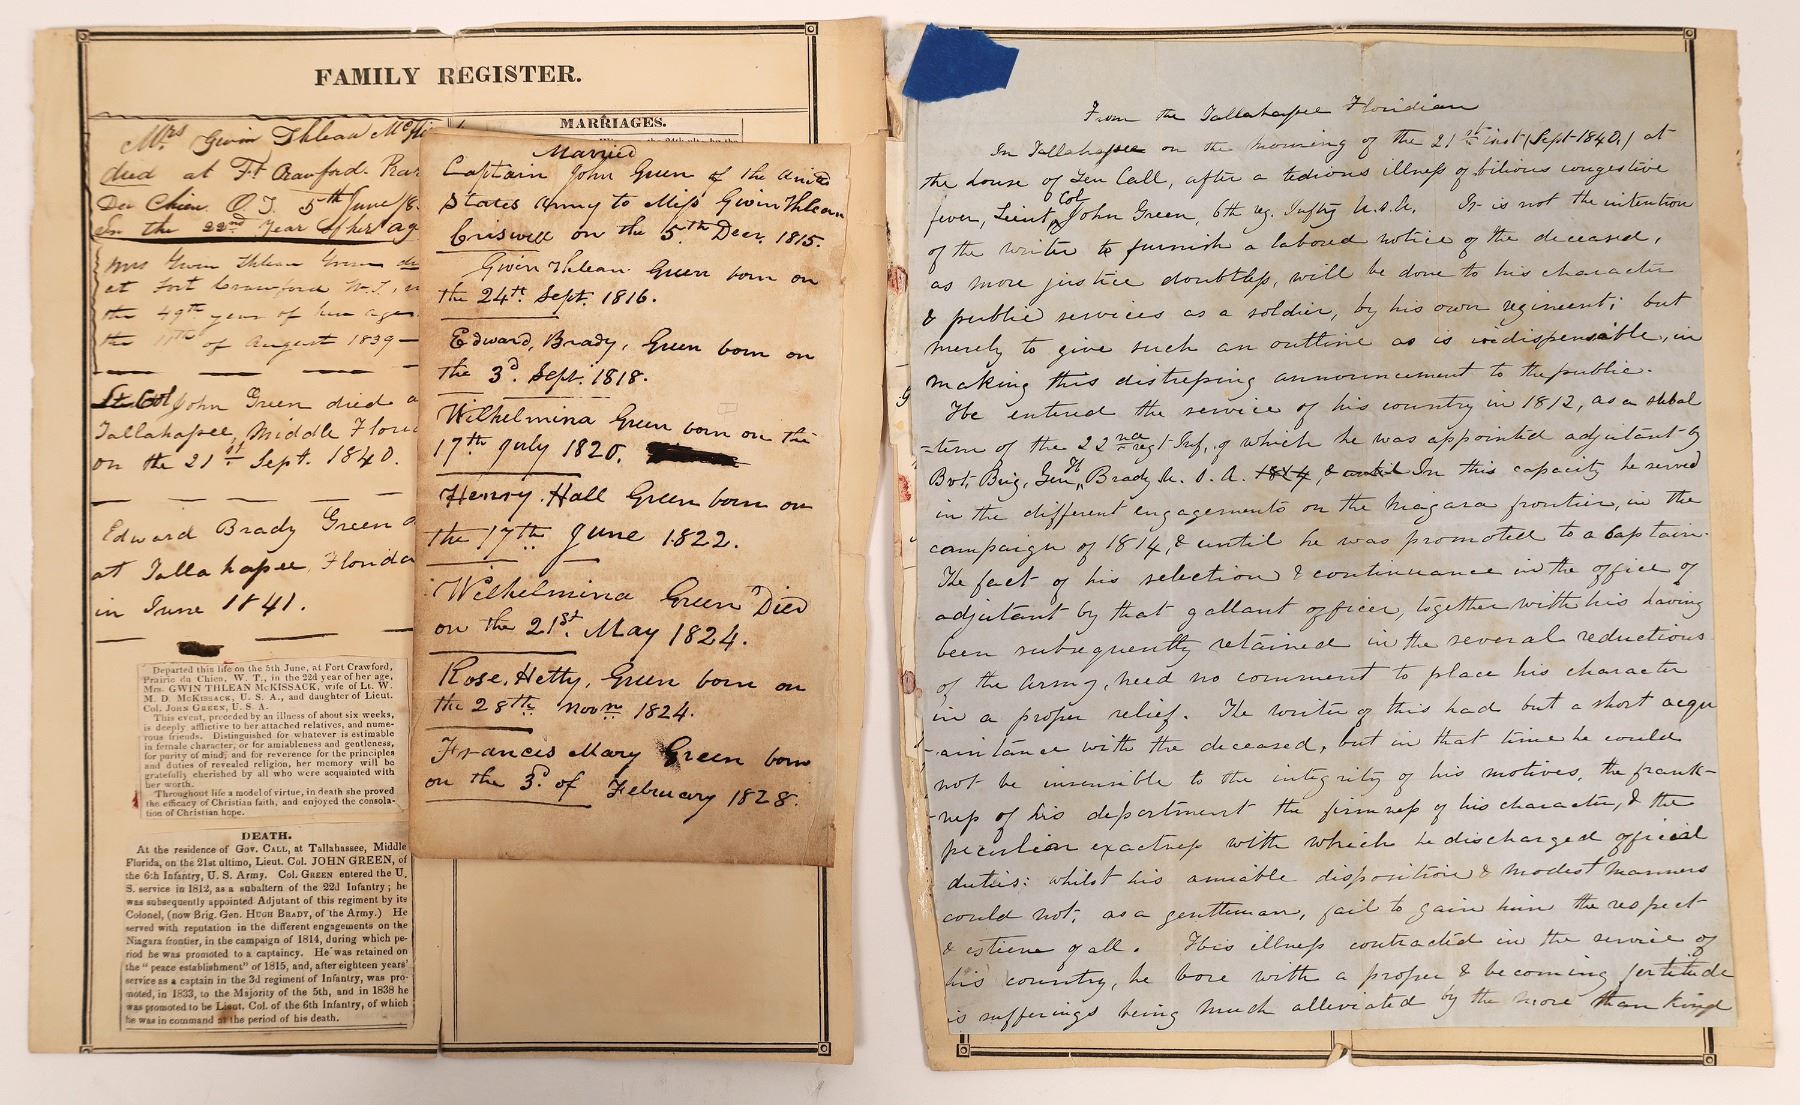 FAMILY REGISTER.
Mrs Gwin Thlean
died at Ft Crawford.
Du Chien. 5th June
In the 22nd Year of her ag
Mrs Gwin Thlean Green
at Fort Crawford W.T.,
the 49th year of her age
the 11th of August 1839 —
Lt. Col John Green died
Tallahassee, Middle
on the 21st Sept. 1840.
Edward Brady Green
at Tallahassee, Florida
in June 1841.
Departed this life on the 5th June, at Fort Crawford,
Prairie du Chien, W. T., in the 22d year of her age,
Mrs. GWIN THLEAN McKISSACK, wife of Lt. W.
M. D. McKissack, U. S. A., and daughter of Lieut.
Col. John Green, U. S. A.
This event, preceded by an illness of about six weeks,
is deeply afflictive to her attached relatives, and nume-
rous friends. Distinguished for whatever is estimable
in female character, or for amiableness and gentleness,
for purity of mind, and for reverence for the principles
and duties of revealed religion, her memory will be
gratefully cherished by all who were acquainted with
her worth.
Throughout life a model of virtue, in death she proved
the efficacy of Christian faith, and enjoyed the consola-
tion of Christian hope.
DEATH.
At the residence of Gov. Call, at Tallahassee, Middle
Florida, on the 21st ultimo, Lieut. Col. JOHN GREEN, of
the 6th Infantry, U. S. Army. Col. Green entered the U.
S. service in 1812, as a subaltern of the 22d Infantry; he
was subsequently appointed Adjutant of this regiment by its
Colonel, (now Brig. Gen. Hugh Brady, of the Army.) He
served with reputation in the different engagements on the
Niagara frontier, in the campaign of 1814, during which pe-
riod he was promoted to a captaincy. He was retained on
the "peace establishment" of 1815, and, after eighteen years'
service as a captain in the 3d regiment of Infantry, was pro-
moted, in 1833, to the Majority of the 5th, and in 1838 he
was promoted to be Lieut. Col. of the 6th Infantry, of which
he was in command at the period of his death.
MARRIAGES.
Married
Captain John Green of the United
States Army to Miss Gwin Thlean
Criswell on the 5th Decr. 1815.
Gwin Thlean Green born on
the 24th. Sept. 1816.
Edward, Brady, Green born on
the 3d. Sept. 1818.
Wilhelmina Green born on the
17th July 1820.
Henry. Hall Green born on
the 17th June 1822.
Wilhelmina Green Died
on the 21st. May 1824.
Rose, Hetty, Green born on
the 28th Novr 1824.
Frances Mary Green born
on the 3d. of February 1828.
From the Tallahassee Floridian
In Tallahassee on the morning of the 21st inst (Sept 1840,) at
the house of Gen Call, after a tedious illness of bilious congestive
fever, Lieut Col John Green, 6th reg. Inftry U.S.A. It is not the intention
of the writer to furnish a labored notice of the deceased,
as more justice doubtless, will be done to his character
& public services as a soldier, by his own regiment; but
merely to give such an outline as is indispensable, in
making this distressing announcement to the public.
He entered the service of his country in 1812, as a subal
-tern of the 22nd regt Inf, of which he was appointed adjutant by
Bvt, Brig, Gen H, Brady U. S. A. 1814, & until In this capacity he served
in the different engagements on the Niagara frontier, in the
campaign of 1814, & until he was promoted to a Captain.
The fact of his selection & continuance in the office of
adjutant by that gallant officer, together with his having
been subsequently retained in the several reductions
of the Army, need no comment to place his character
in a proper relief. The writer of this had but a short acqu
-aintance with the deceased, but in that time he could
not be insensible to the integrity of his motives, the frank-
-ness of his department the firmness of his character, & the
peculiar exactness with which he discharged official
duties: whilst his amiable disposition & modest manners
could not, as a gentleman, fail to gain him the respect
& esteem of all. This illness contracted in the service of
his country, he bore with a proper & becoming fortitude
is sufferings being much alleviated by the more than kind